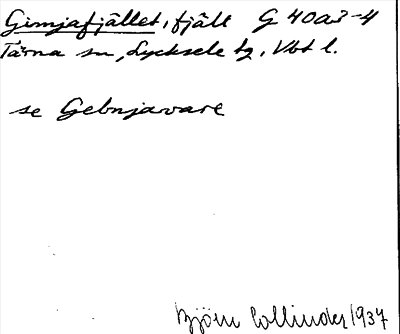 Gimjafjället, fjält G 40a3-4
Tärna sn, Lycksele tg, Vbt l.
se Gebnjavare
Björn Collinder 1937